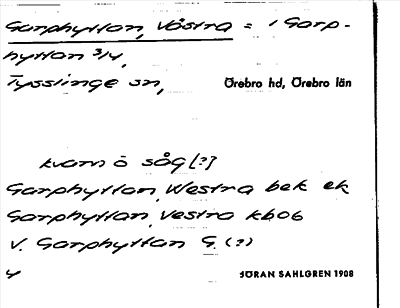 Garphyttan, Västra = 1 Garp-
hyttan 3/4,
Tysslinge sn,
Örebro hd, Örebro län
kvarn o såg [?]
Garphyttan, Westra bek ek
Garphyttan, Vestra kbo6
V. Garphyttan G. (?)
4
JÖRAN SAHLGREN 1908